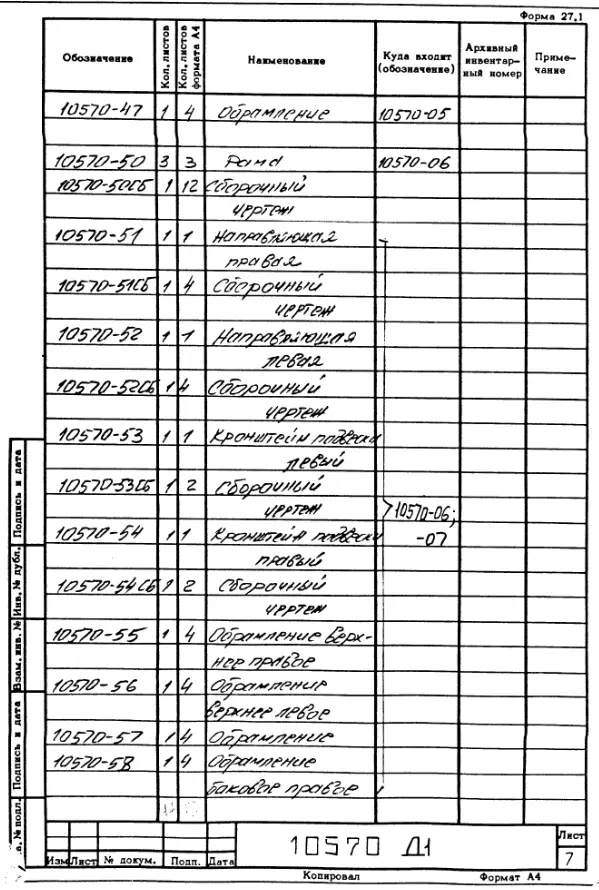 Форма 27.1
Обозначение Кол.листов Кол.листов формата А4 Наименование Куда входит (обозначение) Архивный инвентарный номер Примечание
10570-47 1 4 Обрамление 10570-05
10570-50 3 3 Рама 10570-06
10570-50СБ 1 12 Сборочный
чертеж
10570-51 1 1 Направляющая
правая
10570-51СБ 1 4 Сборочный
чертеж
10570-52 1 1 Направляющая
левая
10570-52СБ 1 4 Сборочный
чертеж
10570-53 1 1 Кронштейн подвески
левый
10570-53СБ 1 2 Сборочный
чертеж 10570-06;
10570-54 1 1 Кронштейн подвески -07
правый
10570-54СБ 1 2 Сборочный
чертеж
10570-55 1 4 Обрамление верх-
нее правое
10570-56 1 4 Обрамление
верхнее левое
10570-57 1 4 Обрамление
10570-58 1 4 Обрамление
боковое правое
Подпись и дата
Инв. № дубл.
Взам. инв. №
Подпись и дата
в. № подл.
10570 Д1
Лист
7
Изм Лист № докум. Подп. Дата
Копировал Формат А4